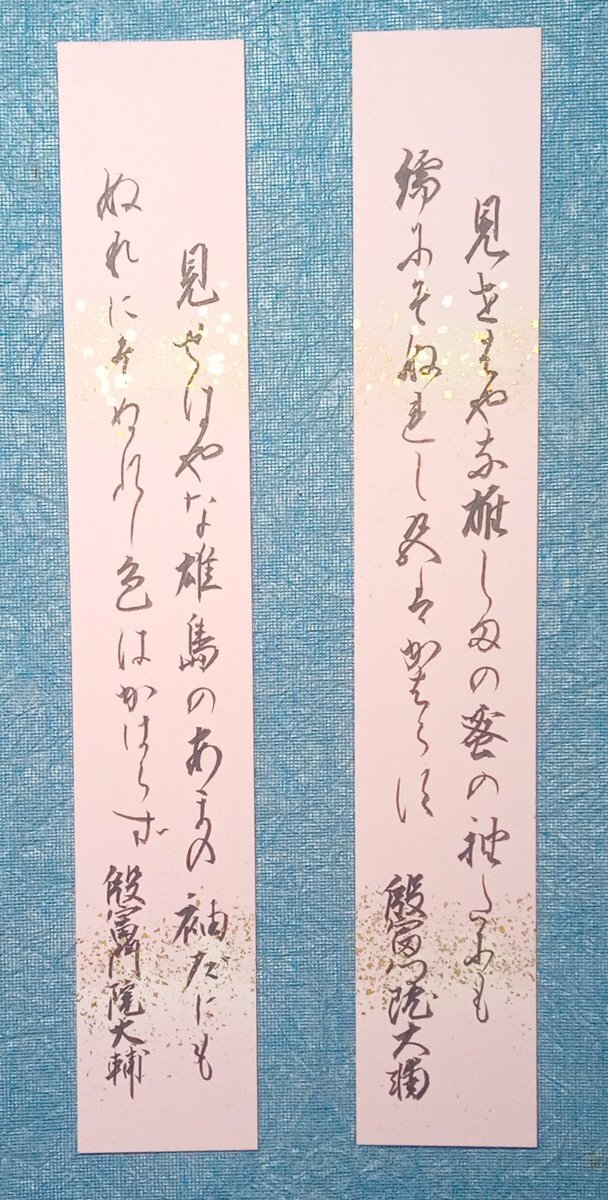 見せはやな雄しまの蜑の袖たにも
濡にそぬれし色はかはらす
殷富門院大輔
見せはやな雄島のあまの袖だにも
ぬれにそぬれし色はかはらず
殷富門院大輔